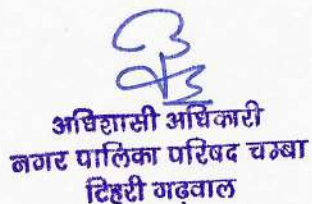 अधिशासी अधिकारी
नगर पालिका परिषद चम्बा
टिहरी गढवाल